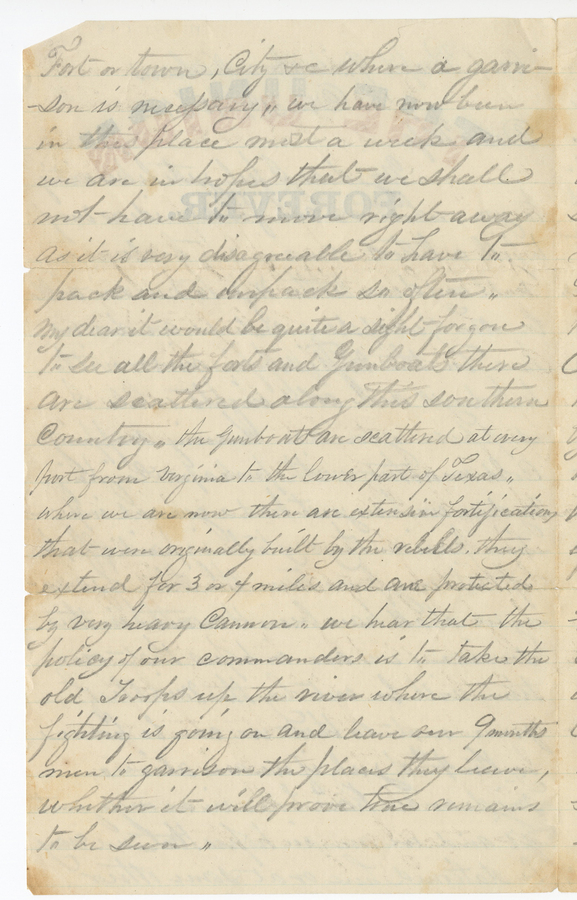 Fort or town, City &c where a garri-
-son is necessary,, we have now been
in this place most a week and
we are in hopes that we shall
not have to move right away
as it is very disagreeable to have to
pack and unpack so often,,
My dear it would be quite a sight for you
to see all the forts and Gunboats there
are scattered along this southern
Country,, the Gunboats are scattered at every
port from Virginia to the lower part of Texas,,
where we are now there are extensive fortifications
that were originally built by the rebels. they
extend for 3 or 4 miles and are protected
by very heavy Cannon,, we hear that the
policy of our commanders is to take the
old Troops up the river where the
fighting is going on and leave our 9 months
men to garrison the places they leave,
whether it will prove true remains
to be seen,,
FOREVER